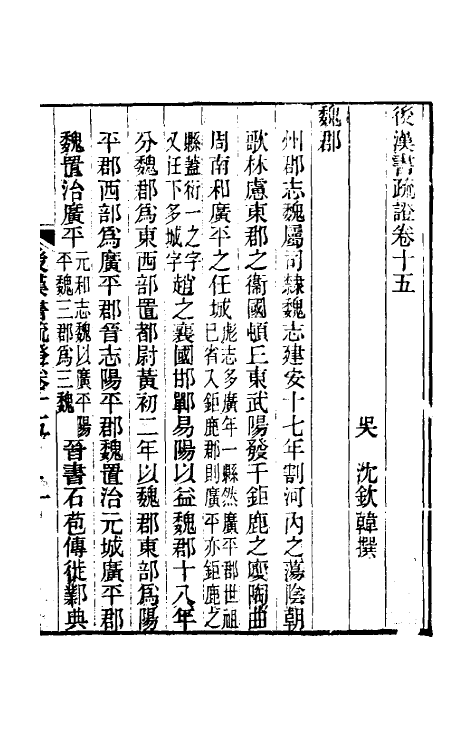 後漢書疏證卷十五
吳　沈欽韓撰
魏郡
州郡志魏屬司隸魏志建安十七年割河內之蕩陰朝
歌林慮東郡之衞國頓丘東武陽發干鉅鹿之廮陶曲
周南和廣平之任城彪志多廣年一縣然廣平郡世祖
已省入鉅鹿郡則廣平亦鉅鹿之
縣蓋衍一之字
又任下多城字趙之襄國邯鄲易陽以益魏郡十八年
分魏郡爲東西部置都尉黃初二年以魏郡東部爲陽
平郡西部爲廣平郡晉志陽平郡魏置治元城廣平郡
魏置治廣平元和志魏以廣平陽
平魏三郡爲三魏晉書石苞傳徙鄴典
後漢書疏證卷十五　一